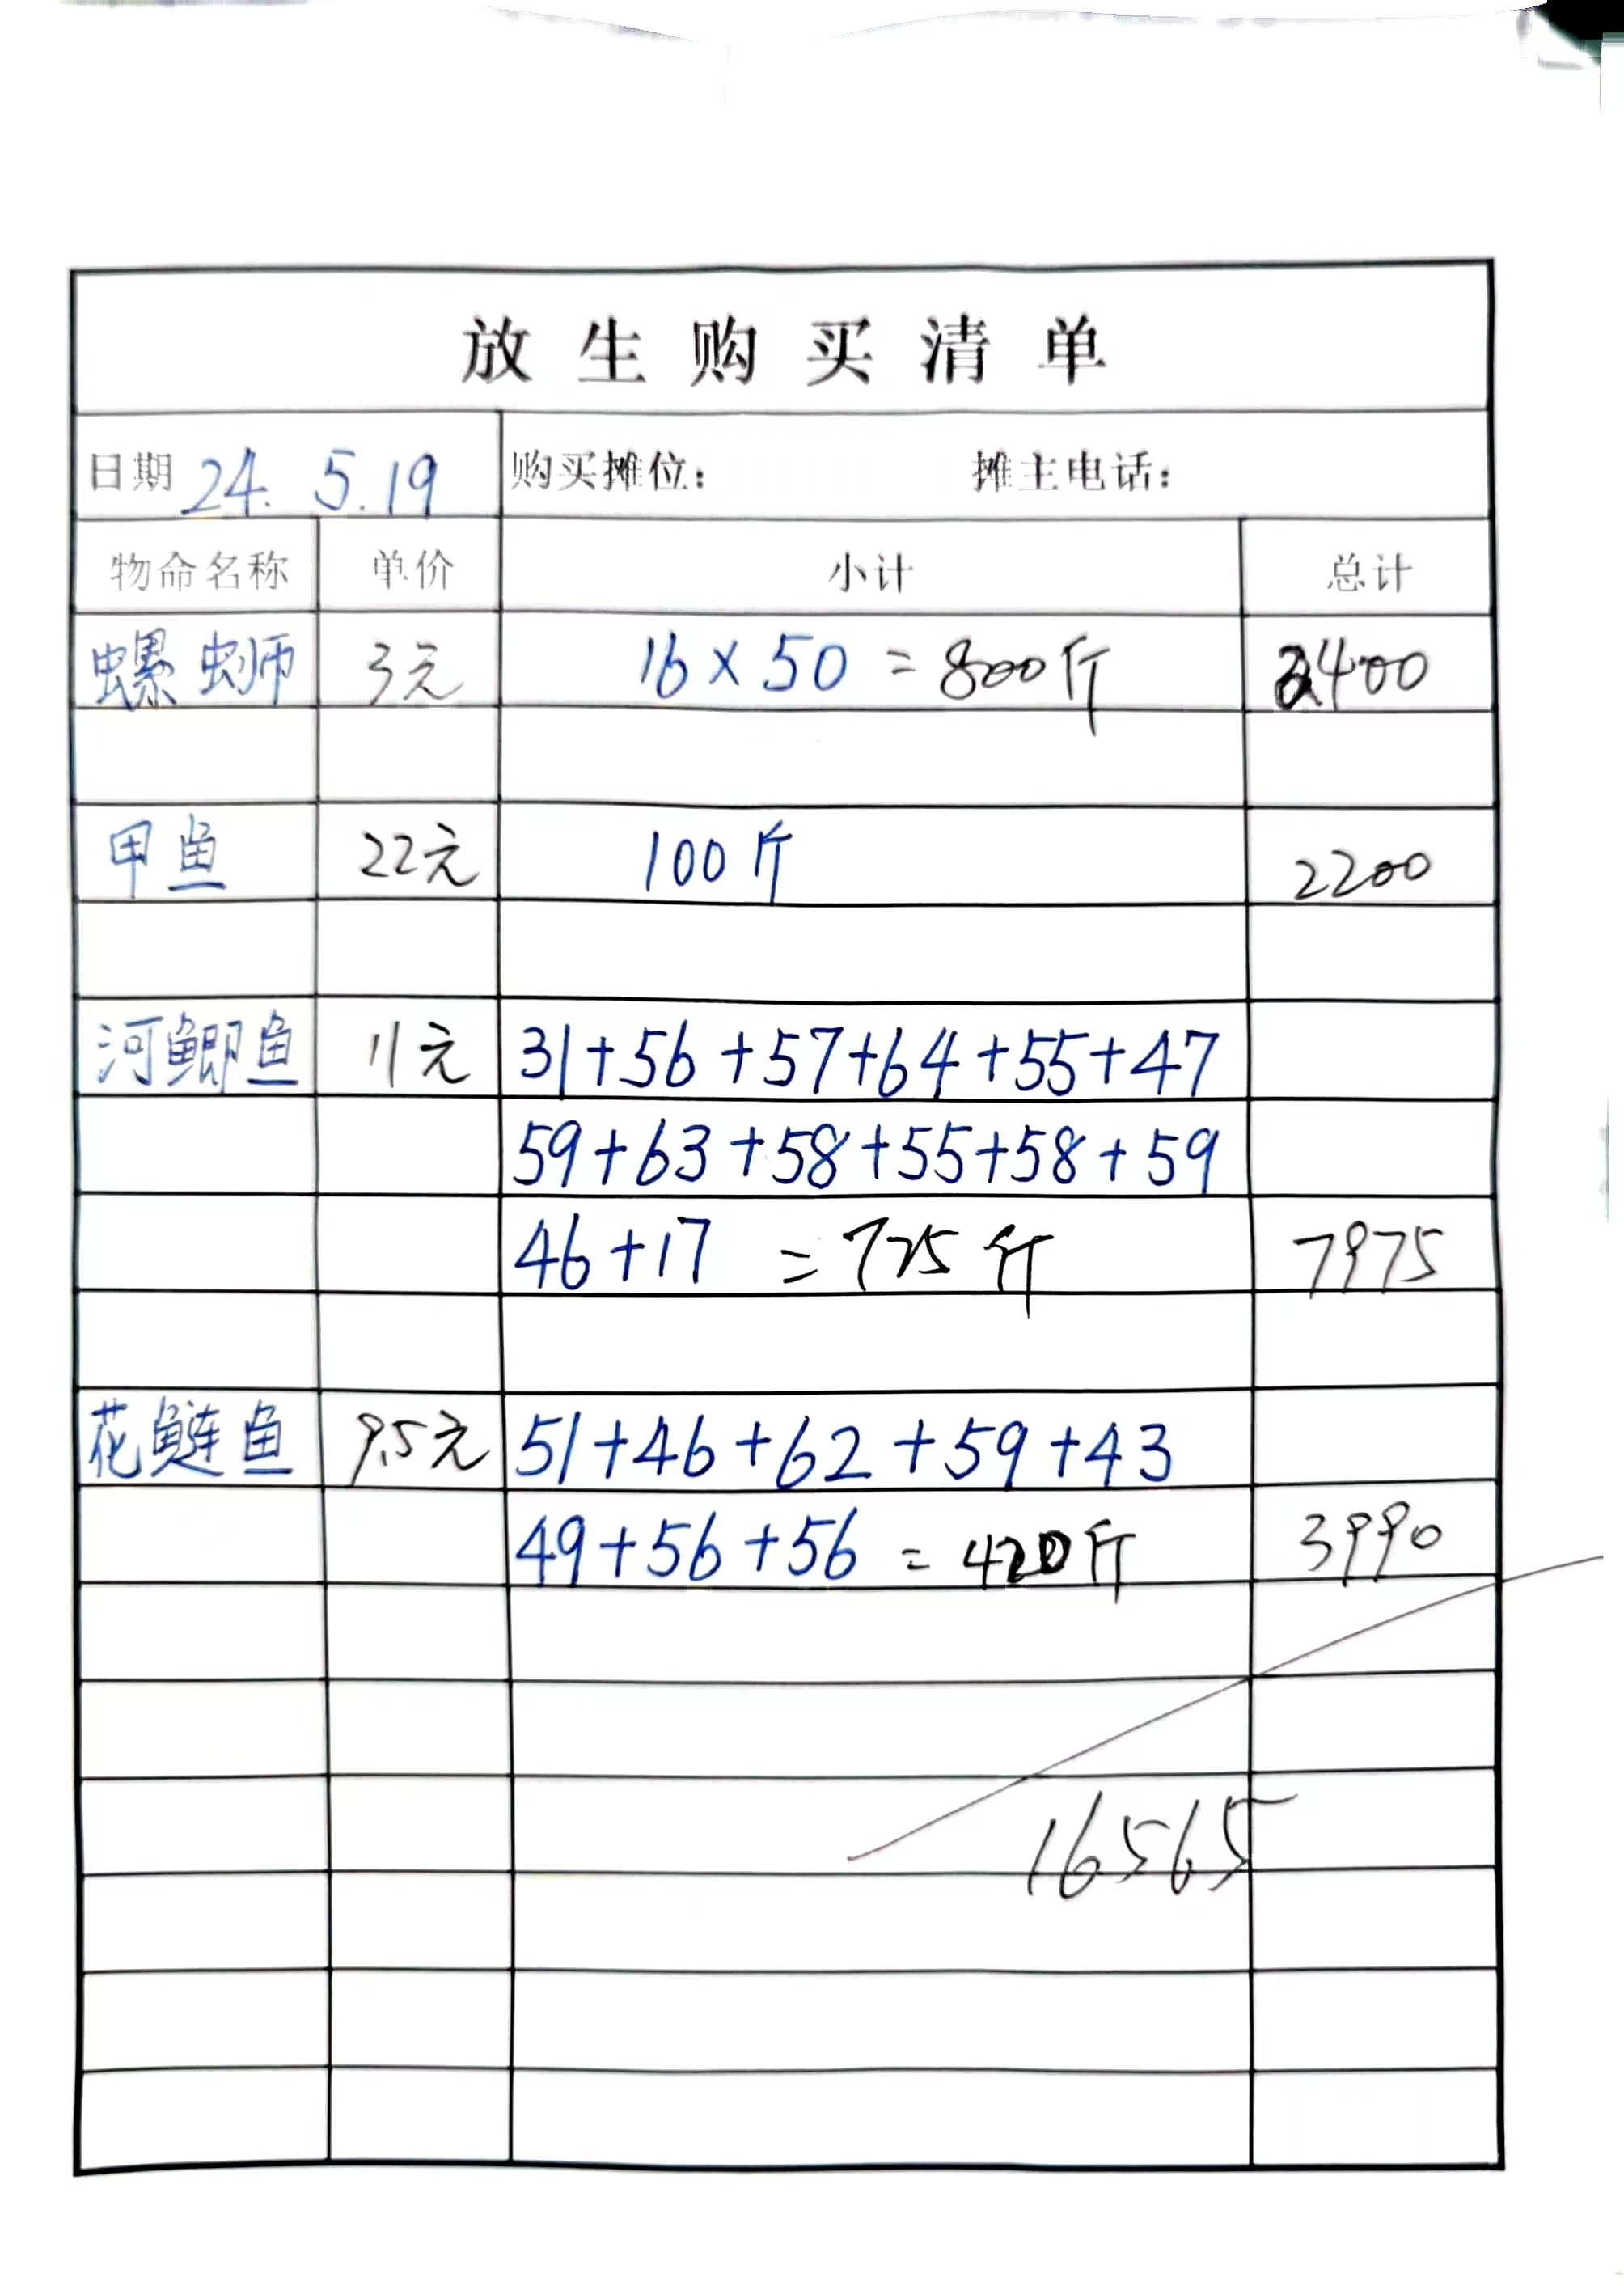 放生购买清单
日期 24. 5. 19 购买摊位： 摊主电话：
物命名称 单价 小计 总计
螺蛳 3元 16×50 =800斤 2400
甲鱼 22元 100斤 2200
河鲫鱼 11元 31+56+57+64+55+47
59+63+58+55+58+59
46+17 =725斤 7975
花鲢鱼 9.5元 51+46+62+59+43
49+56+56 =420斤 3990
16565